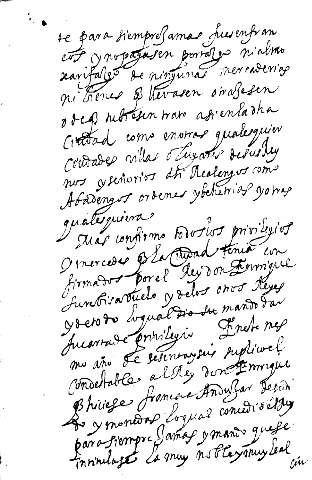 te para siempre jamas fuesen fran
cos y no pagasen portazgo ni almo
xarifazgo de ningunas mercaderias
ni bienes q llevasen o traxesen
o de q tubiesen trato asi en la dha
Ciudad como en otras qualesquier
Ciudades villas o lugares de sus Rey
nos y señorios asi Realengos como
Abadengos ordenes y behetrias y otras
qualesquiera
Mas confirmo todos los privilegios
y mercedes q la ciudad tenia con
firmados por el Rey don Enrrique
su visabuelo y de los otros Reyes
y de todo lo qual dio su mando dar
su carta de privilegio En este mes
mo año de sesenta y seis suplico el
condestable al Rey don Enrrique
q hiciese franca a Andujar de pedi
do y monedas lo qual concedio el Rey
para siempre jamas y mando que se
intitulase la muy noble y muy leal
ciu